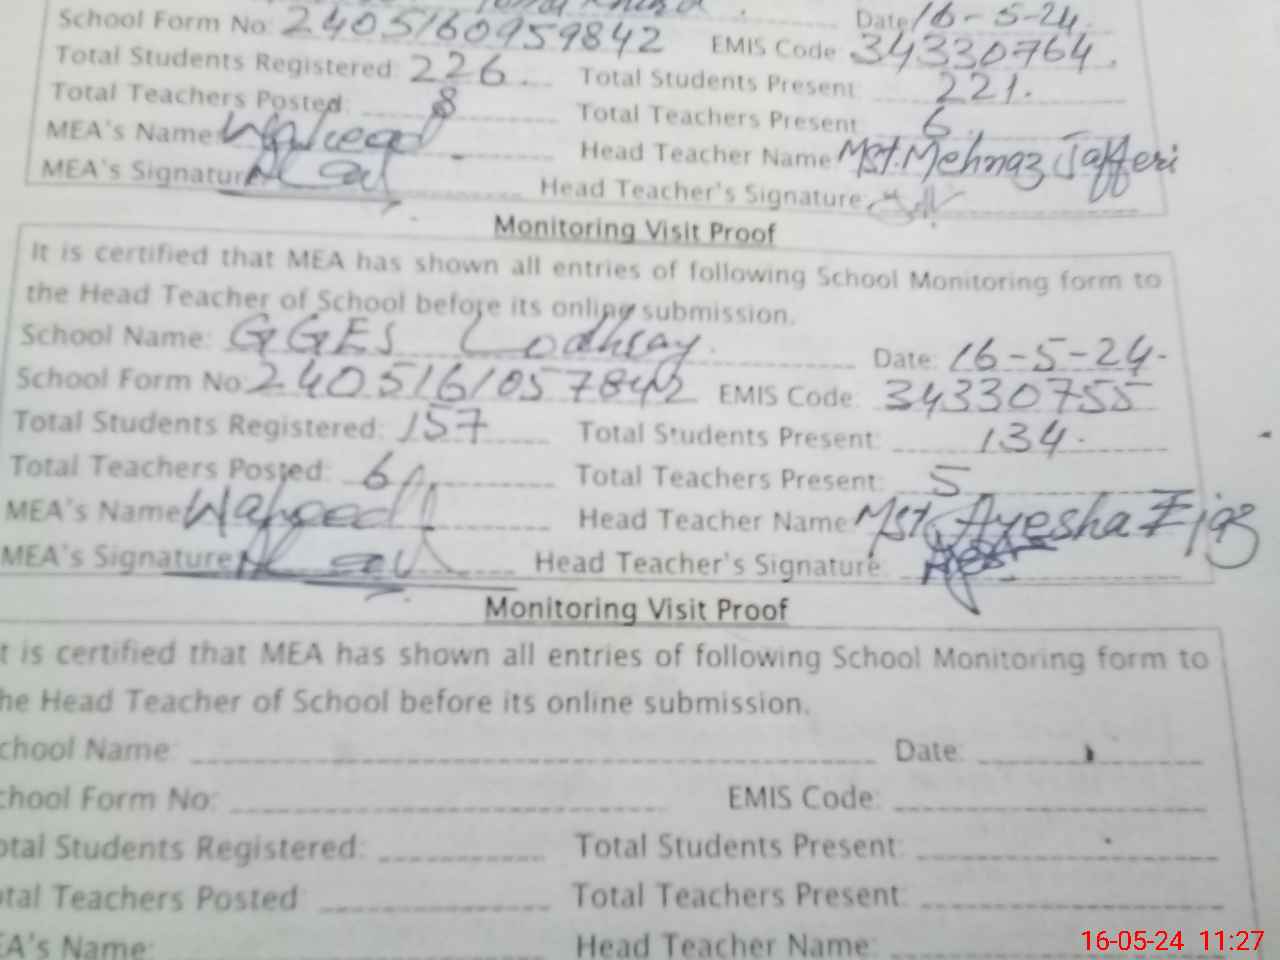 Date 16-5-24.
School Form No: 2405160959842 EMIS Code 34330764.
Total Students Registered: 226. Total Students Present: 221.
Total Teachers Posted: 8 Total Teachers Present 6
MEA's Name Waheed Head Teacher Name Mst. Mehnaz Jafferi
MEA's Signature Head Teacher's Signature:
Monitoring Visit Proof
It is certified that MEA has shown all entries of following School Monitoring form to
the Head Teacher of School before its online submission.
School Name: GGES Lodhray. Date: 16-5-24-
School Form No: 2405161057842 EMIS Code: 34330755
Total Students Registered: 157 Total Students Present: 134.
Total Teachers Posted: 6 Total Teachers Present: 5
MEA's Name Waheed Head Teacher Name Mst. Ayesha Ejaz
MEA's Signature Head Teacher's Signature:
Monitoring Visit Proof
t is certified that MEA has shown all entries of following School Monitoring form to
he Head Teacher of School before its online submission.
chool Name: Date:
chool Form No: EMIS Code:
otal Students Registered: Total Students Present:
otal Teachers Posted Total Teachers Present:
EA's Name: Head Teacher Name:
16-05-24 11:27